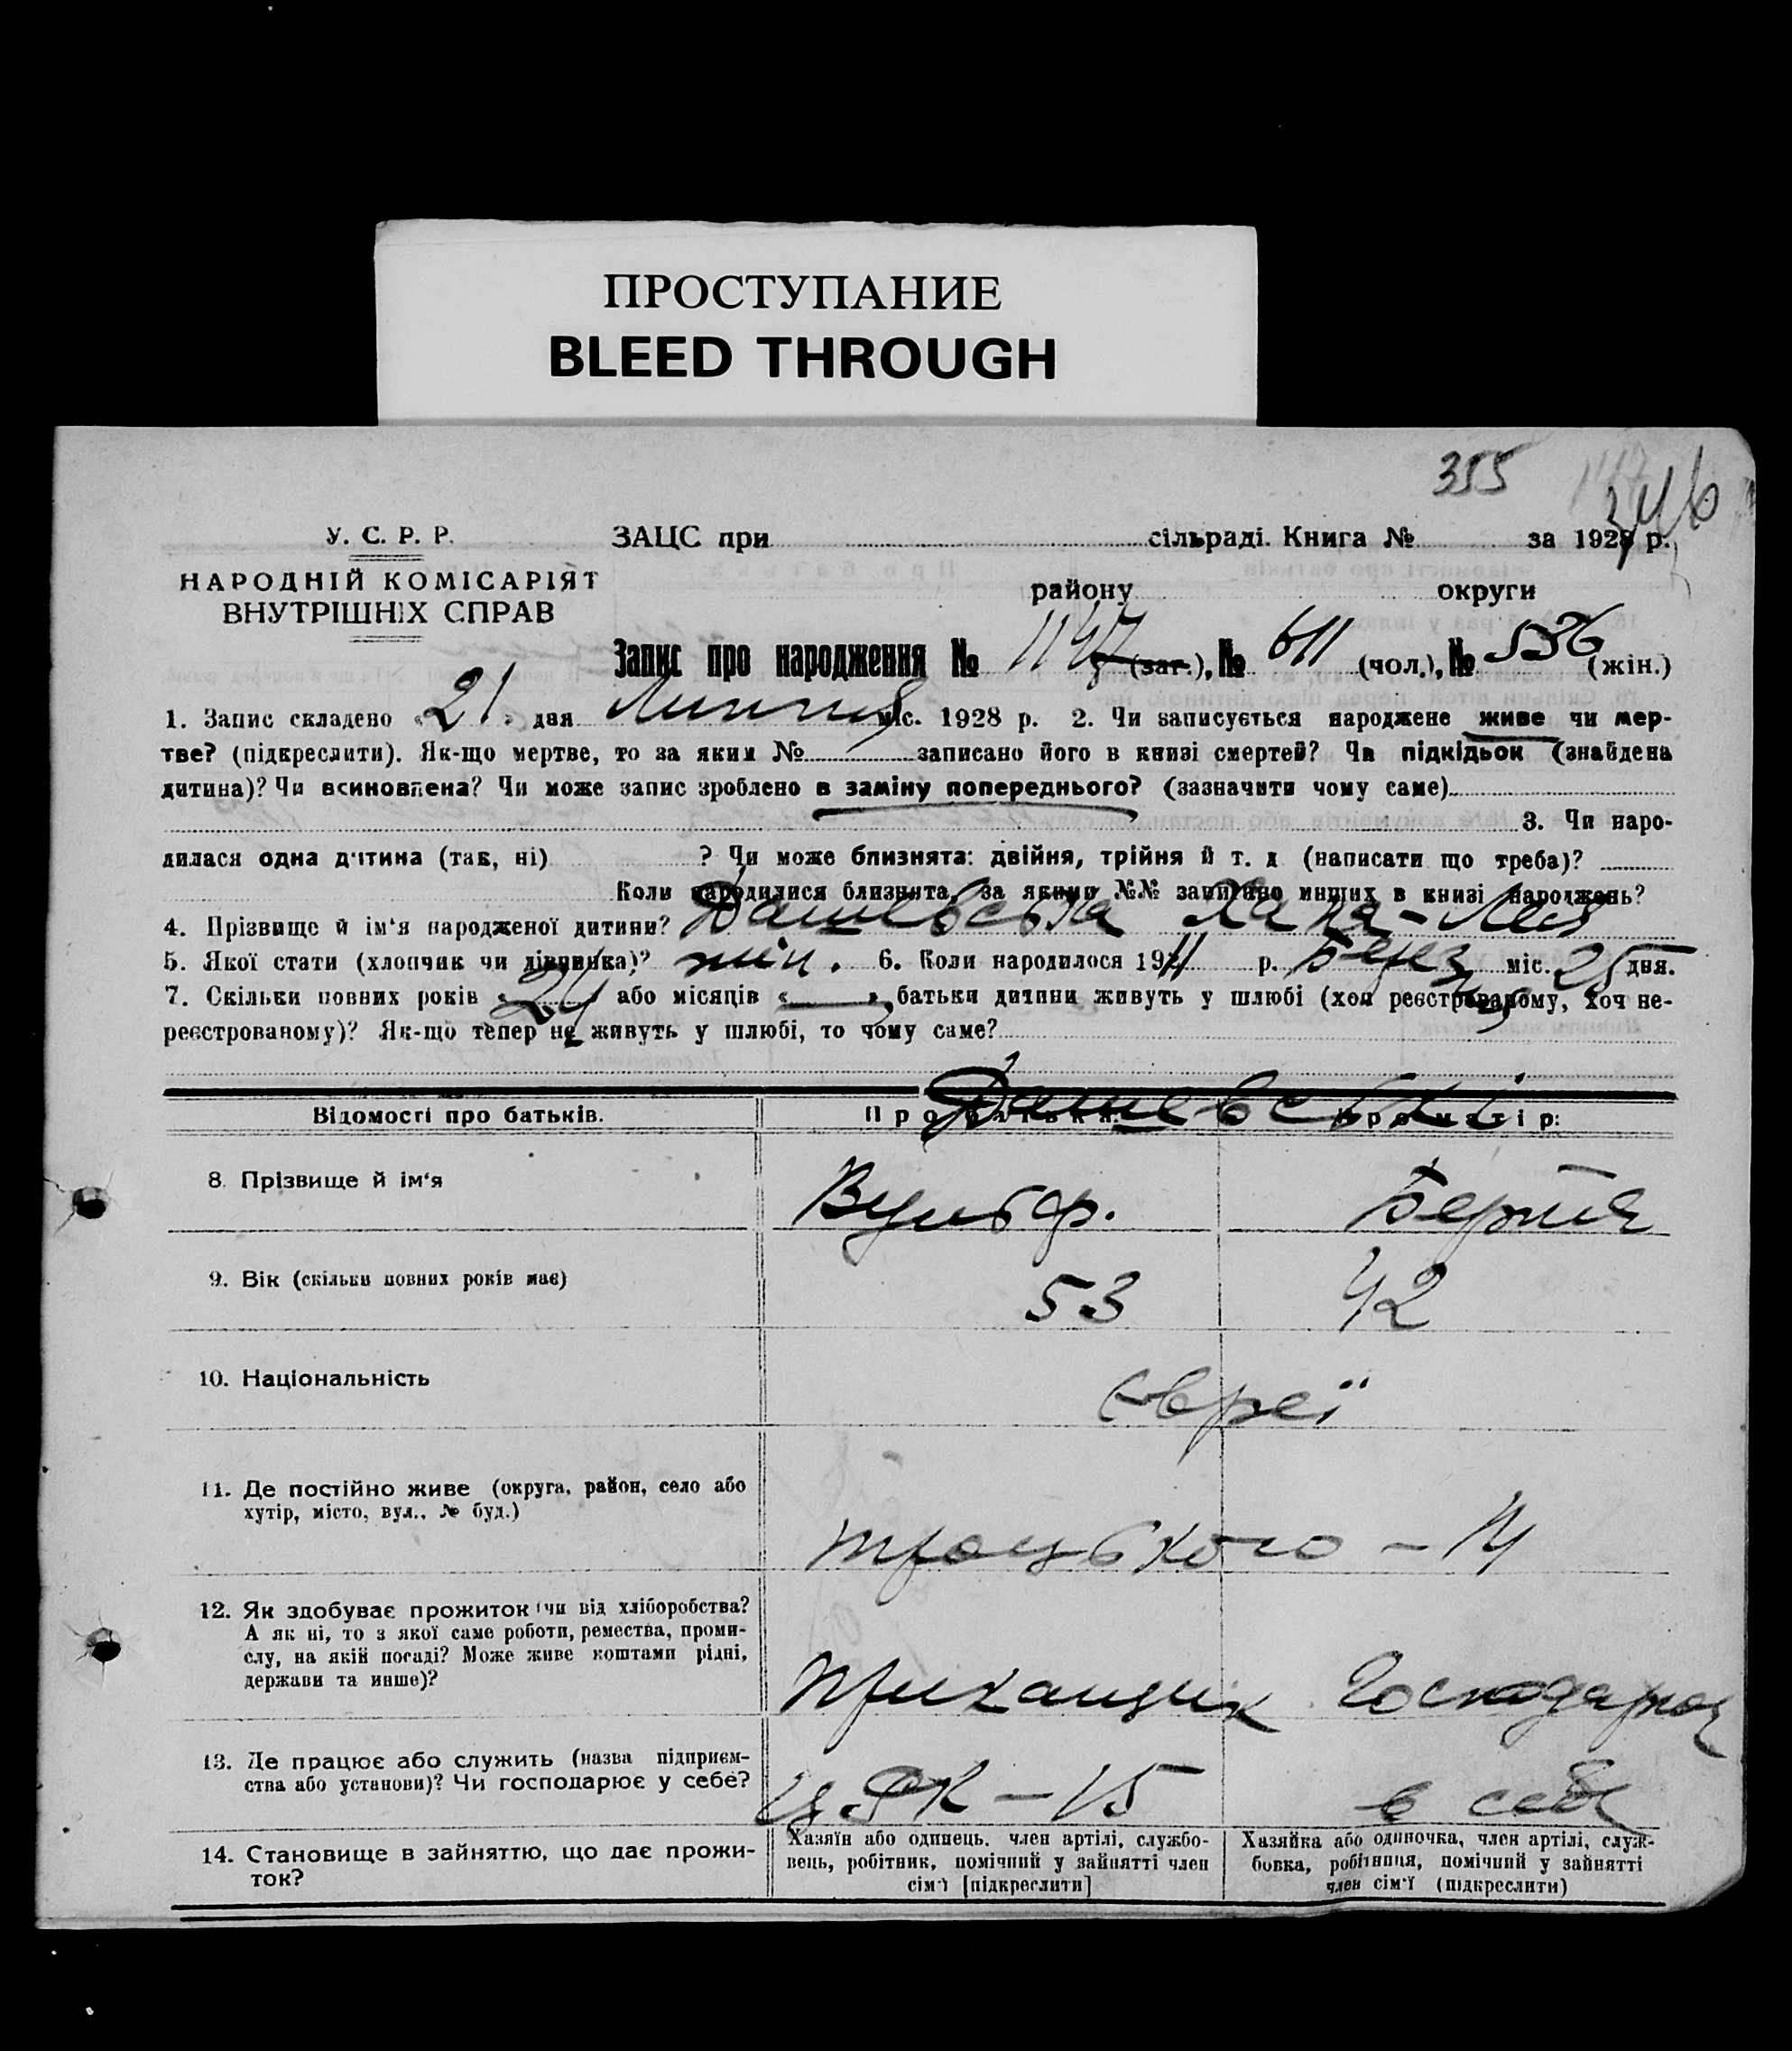 ПРОСТУПАНИЕ
BLEED THROUGH
355
346
У. С. Р. Р.
НАРОДНІЙ КОМІСАРІЯТ
ВНУТРІШНІХ СПРАВ
ЗАЦС при сільраді. Книга № за 1928 р.
району округи
Запис про народження № 1147 (заг.), № 611 (чол.), № 536 (жін.)
1. Запис складено « 21 » дня Липня міс. 1928 р. 2. Чи записується народжене живе чи мер-
тве? (підкреслити). Як-що мертве, то за яким № записано його в книзі смертей? Чи підкідьок (знайдена
дитина)? Чи всиновлена? Чи може запис зроблено в заміну попереднього? (зазначити чому саме)
3. Чи наро-
дилася одна дитина (так, ні) ? Чи може близнята: двійня, трійня й т. д (написати що треба)?
Коли народилися близнята, за якими №№ записано инших в книзі народжень?
4. Прізвище й ім'я народженої дитини? Дашевська Хана-Лея
5. Якої стати (хлопчик чи дівчинка)? жін. 6. Коли народилося 1911 р. Берез міс. 25 дня.
7. Скільки повних років « 24 » або місяців « — » батьки дитини живуть у шлюбі (хоч реєстрованому, хоч не-
реєстрованому)? Як-що тепер не живуть у шлюбі, то чому саме?
Відомості про батьків. Про батька: Про матір:
Дашевські
8. Прізвище й ім'я Вульф. Бейля
9. Вік (скільки повних років має) 53 42
10. Національність євреї
11. Де постійно живе (округа, район, село або
хутір, місто, вул., № буд.)
Троцького – 14
12. Як здобуває прожиток (чи від хліборобства?
А як ні, то з якої саме роботи, ремества, проми-
слу, на якій посаді? Може живе коштами рідні,
держави та инше)?
Приказщик Господарює
13. Де працює або служить (назва підприєм-
ства або установи)? Чи господарює у себе?
ЦРК – 15 в себе
14. Становище в зайняттю, що дає прожи-
ток?
Хазяїн або одинець, член артілі, службо-
вець, робітник, помічний у зайнятті член
сім'ї [підкреслити]
Хазяйка або одиночка, член артілі, служ-
бовка, робітниця, помічний у зайнятті
член сім'ї (підкреслити)